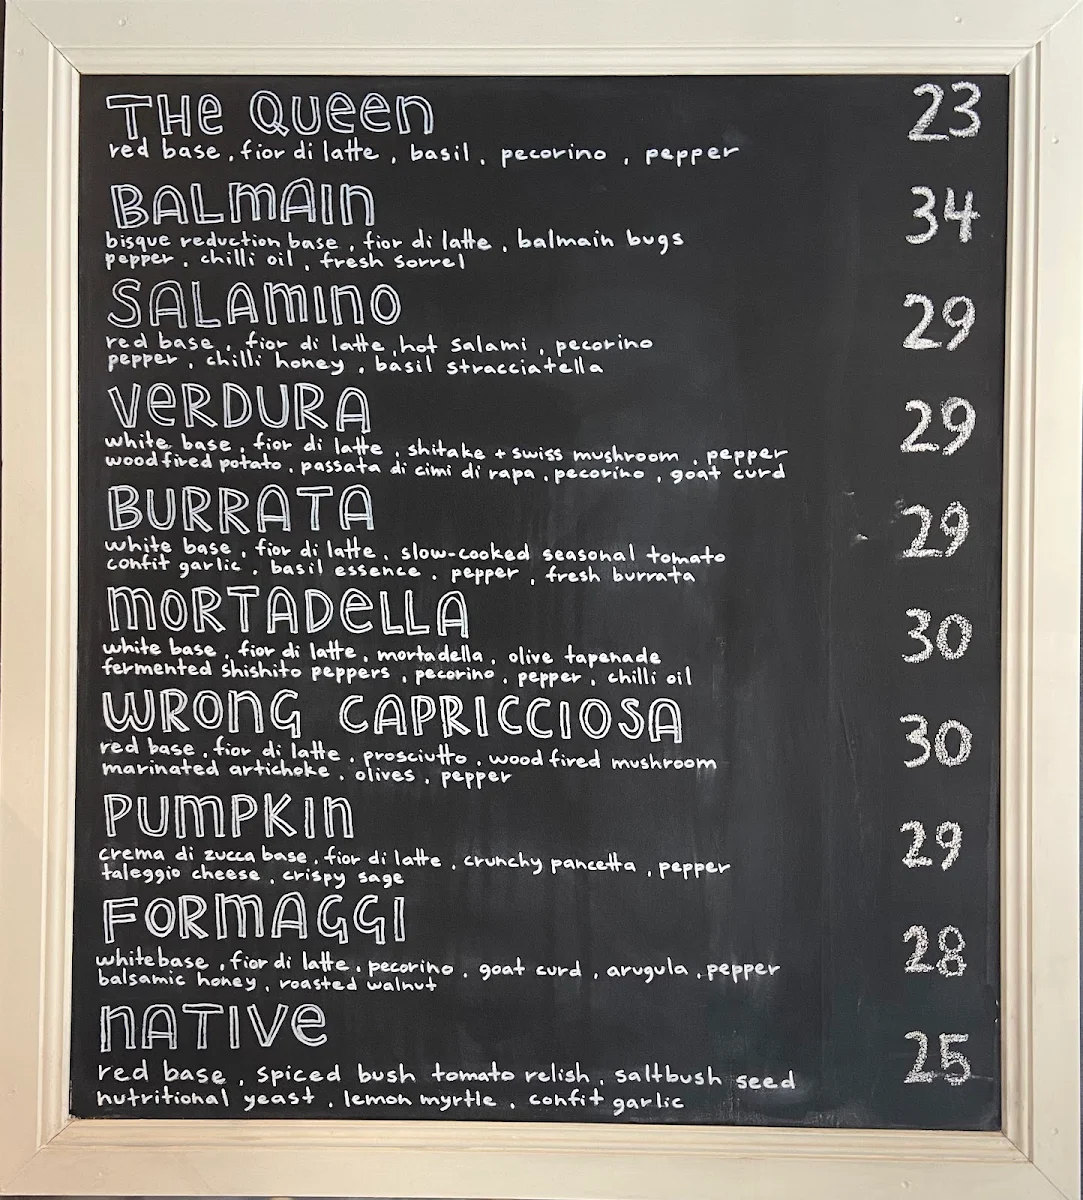 THE QUEEN 23
red base, fior di latte, basil, pecorino, pepper
BALMAIN 34
bisque reduction base, fior di latte, balmain bugs
pepper, chilli oil, fresh sorrel
SALAMINO 29
red base, fior di latte, hot salami, pecorino
pepper, chilli honey, basil stracciatella
VERDURA 29
white base, fior di latte, shitake + swiss mushroom, pepper
wood fired potato, passata di cimi di rapa, pecorino, goat curd
BURRATA 29
white base, fior di latte, slow-cooked seasonal tomato
confit garlic, basil essence, pepper, fresh burrata
MORTADELLA 30
white base, fior di latte, mortadella, olive tapenade
fermented shishito peppers, pecorino, pepper, chilli oil
WRONG CAPRICCIOSA 30
red base, fior di latte, prosciutto, wood fired mushroom
marinated artichoke, olives, pepper
PUMPKIN 29
crema di zucca base, fior di latte, crunchy pancetta, pepper
taleggio cheese, crispy sage
FORMAGGI 28
white base, fior di latte, pecorino, goat curd, arugula, pepper
balsamic honey, roasted walnut
NATIVE 25
red base, spiced bush tomato relish, saltbush seed
nutritional yeast, lemon myrtle, confit garlic